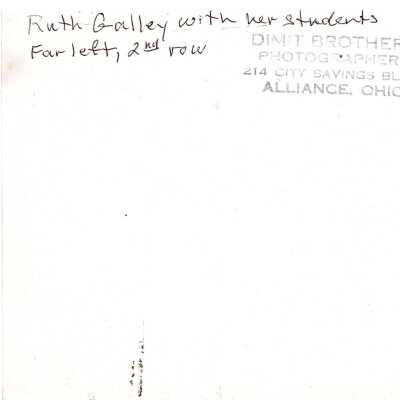 Ruth Galley with her students
Far left, 2nd row
DIMIT BROTHER
PHOTOGRAPHER
214 CITY SAVINGS BL
ALLIANCE, OHIO